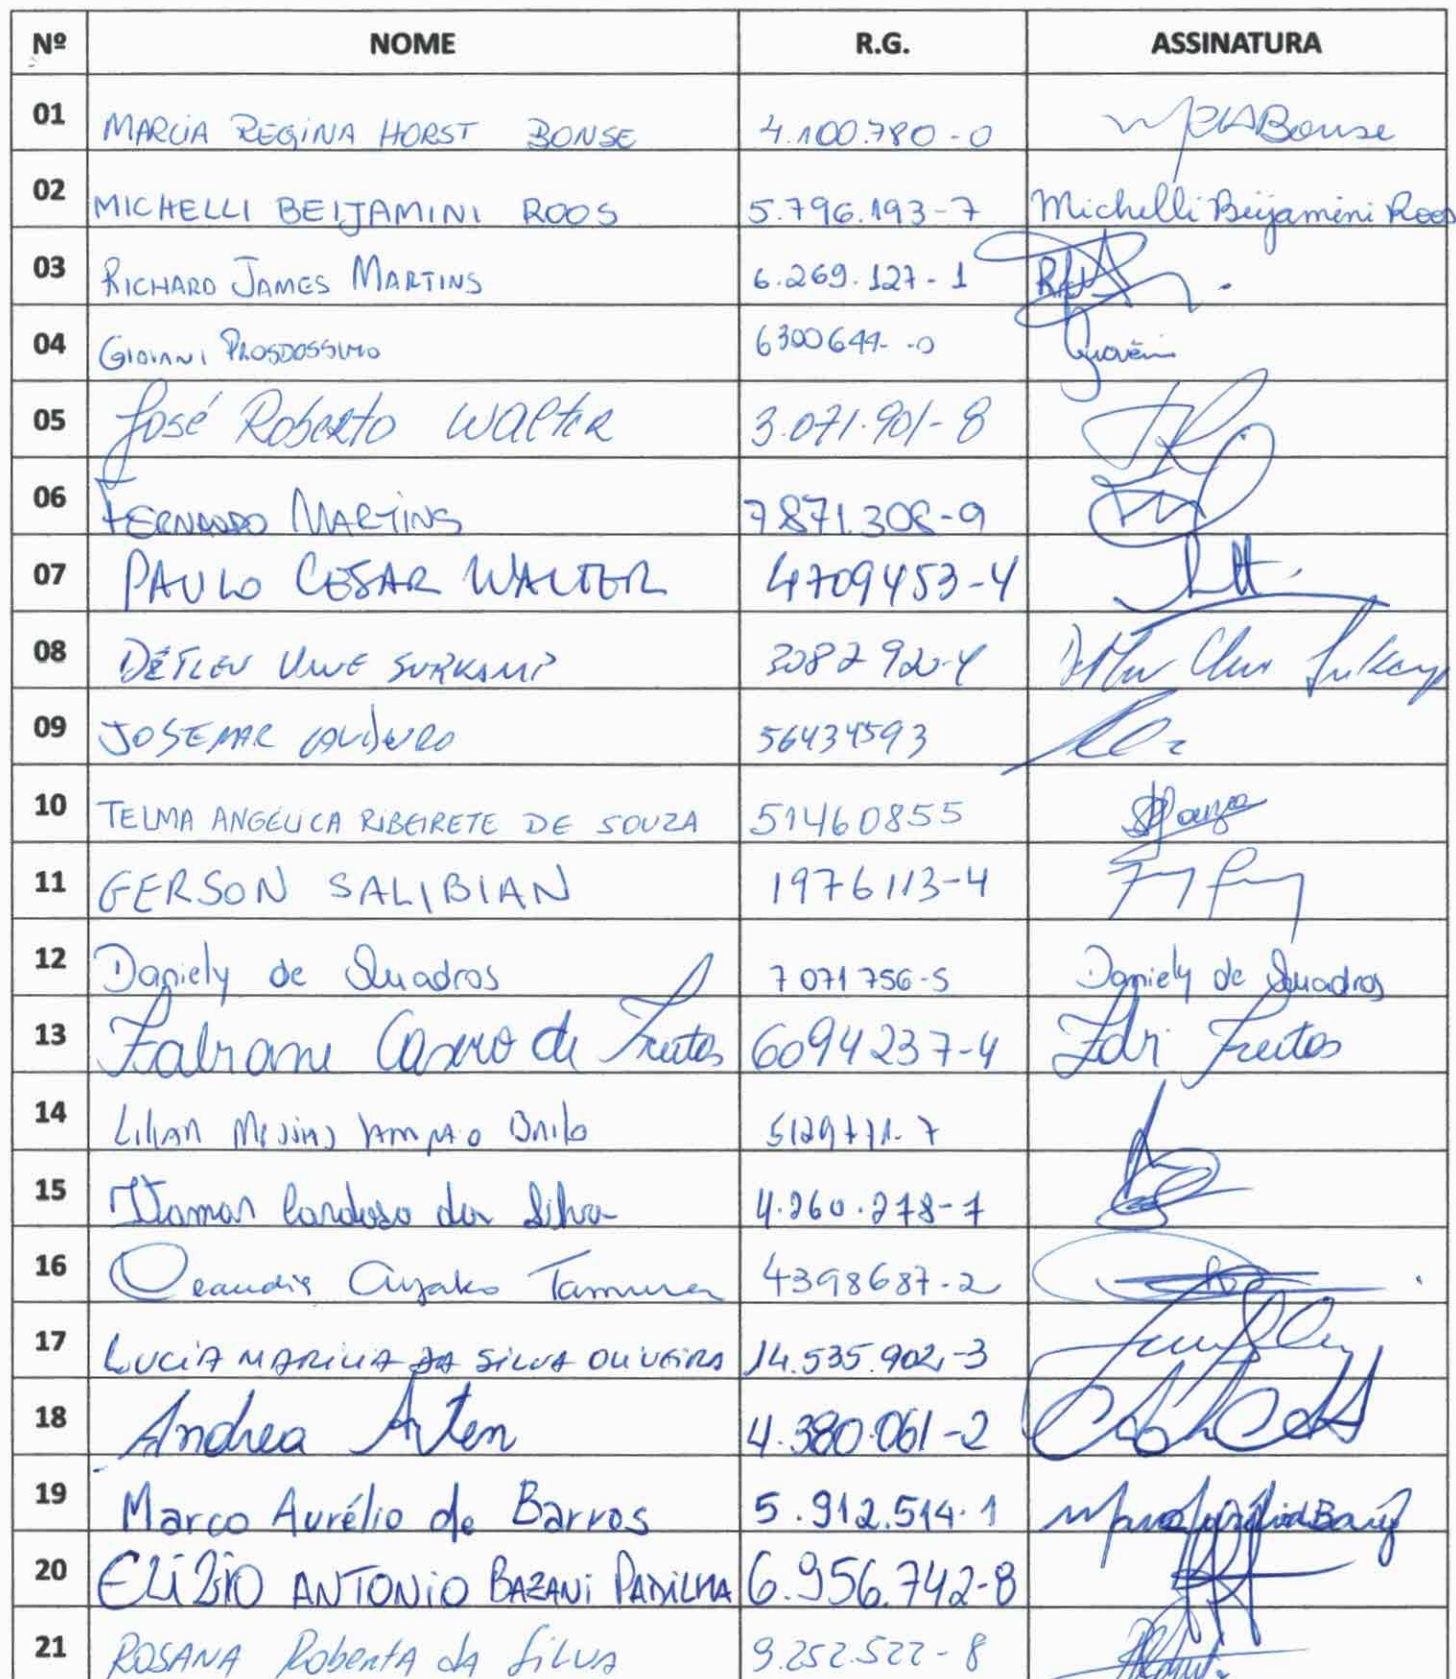 Nº NOME R.G. ASSINATURA
01 MARCIA REGINA HORST BONSE 4.100.780-0 Bonse
02 MICHELLI BEIJAMINI ROOS 5.796.193-7 Michelli Beijamini Roos
03 RICHARD JAMES MARTINS 6.269.127-1
04 GIOVANI PROSDOSSIMO 6300644--0 Giovani
05 José Roberto Walter 3.071.901-8
06 FERNANDO MARTINS 7871.308-9
07 PAULO CESAR WALTER 4709453-4
08 DETLEV UWE SURKAMP
09 JOSEMAR 56434593
10 TELMA ANGÉLICA RIBEIRETE DE SOUZA 51460855 Souza
11 GERSON SALIBIAN 1976113-4
12 Daniely de Quadros 7071756-5 Daniely de Quadros
13 Fabiane Casero de Freitas 6094237-4 Freitas
14 Lilian Messias
15 Itamar Cardoso da Silva 4.260.278-1
16 Claudia Ayako Tamura 4398687-2
17 LUCIA MARILIA DA SILVA OLIVEIRA 14.535.902-3
18 Andrea Arten 4.380.061-2
19 Marco Aurélio de Barros 5.912.514-1
20 ELIZIO ANTONIO BAZANI PADILHA 6.956.742-8
21 ROSANA Roberta da Silva 9.252.522-8